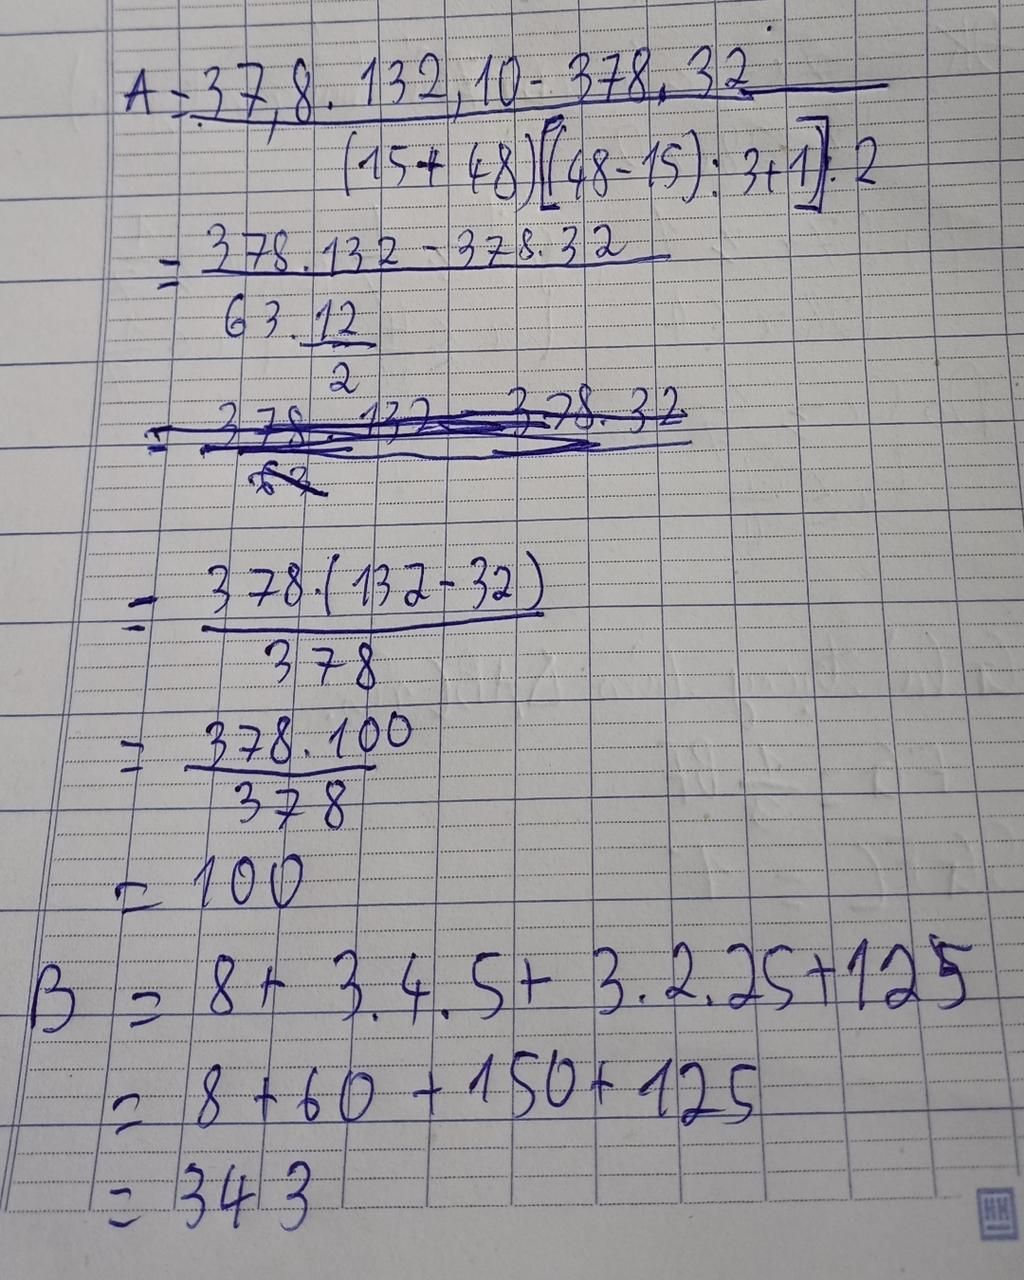 A = 37,8 . 132,10 - 378.32
(15 + 48)[(48-15) : 3+1] : 2
= 378.132 - 378.32
63.12
2
= 378 . 132 - 378.32
63
= 378.(132-32)
378
= 378.100
378
= 100
B = 8 + 3.4.5 + 3.2.25 + 125
= 8 + 60 + 150 + 125
= 343